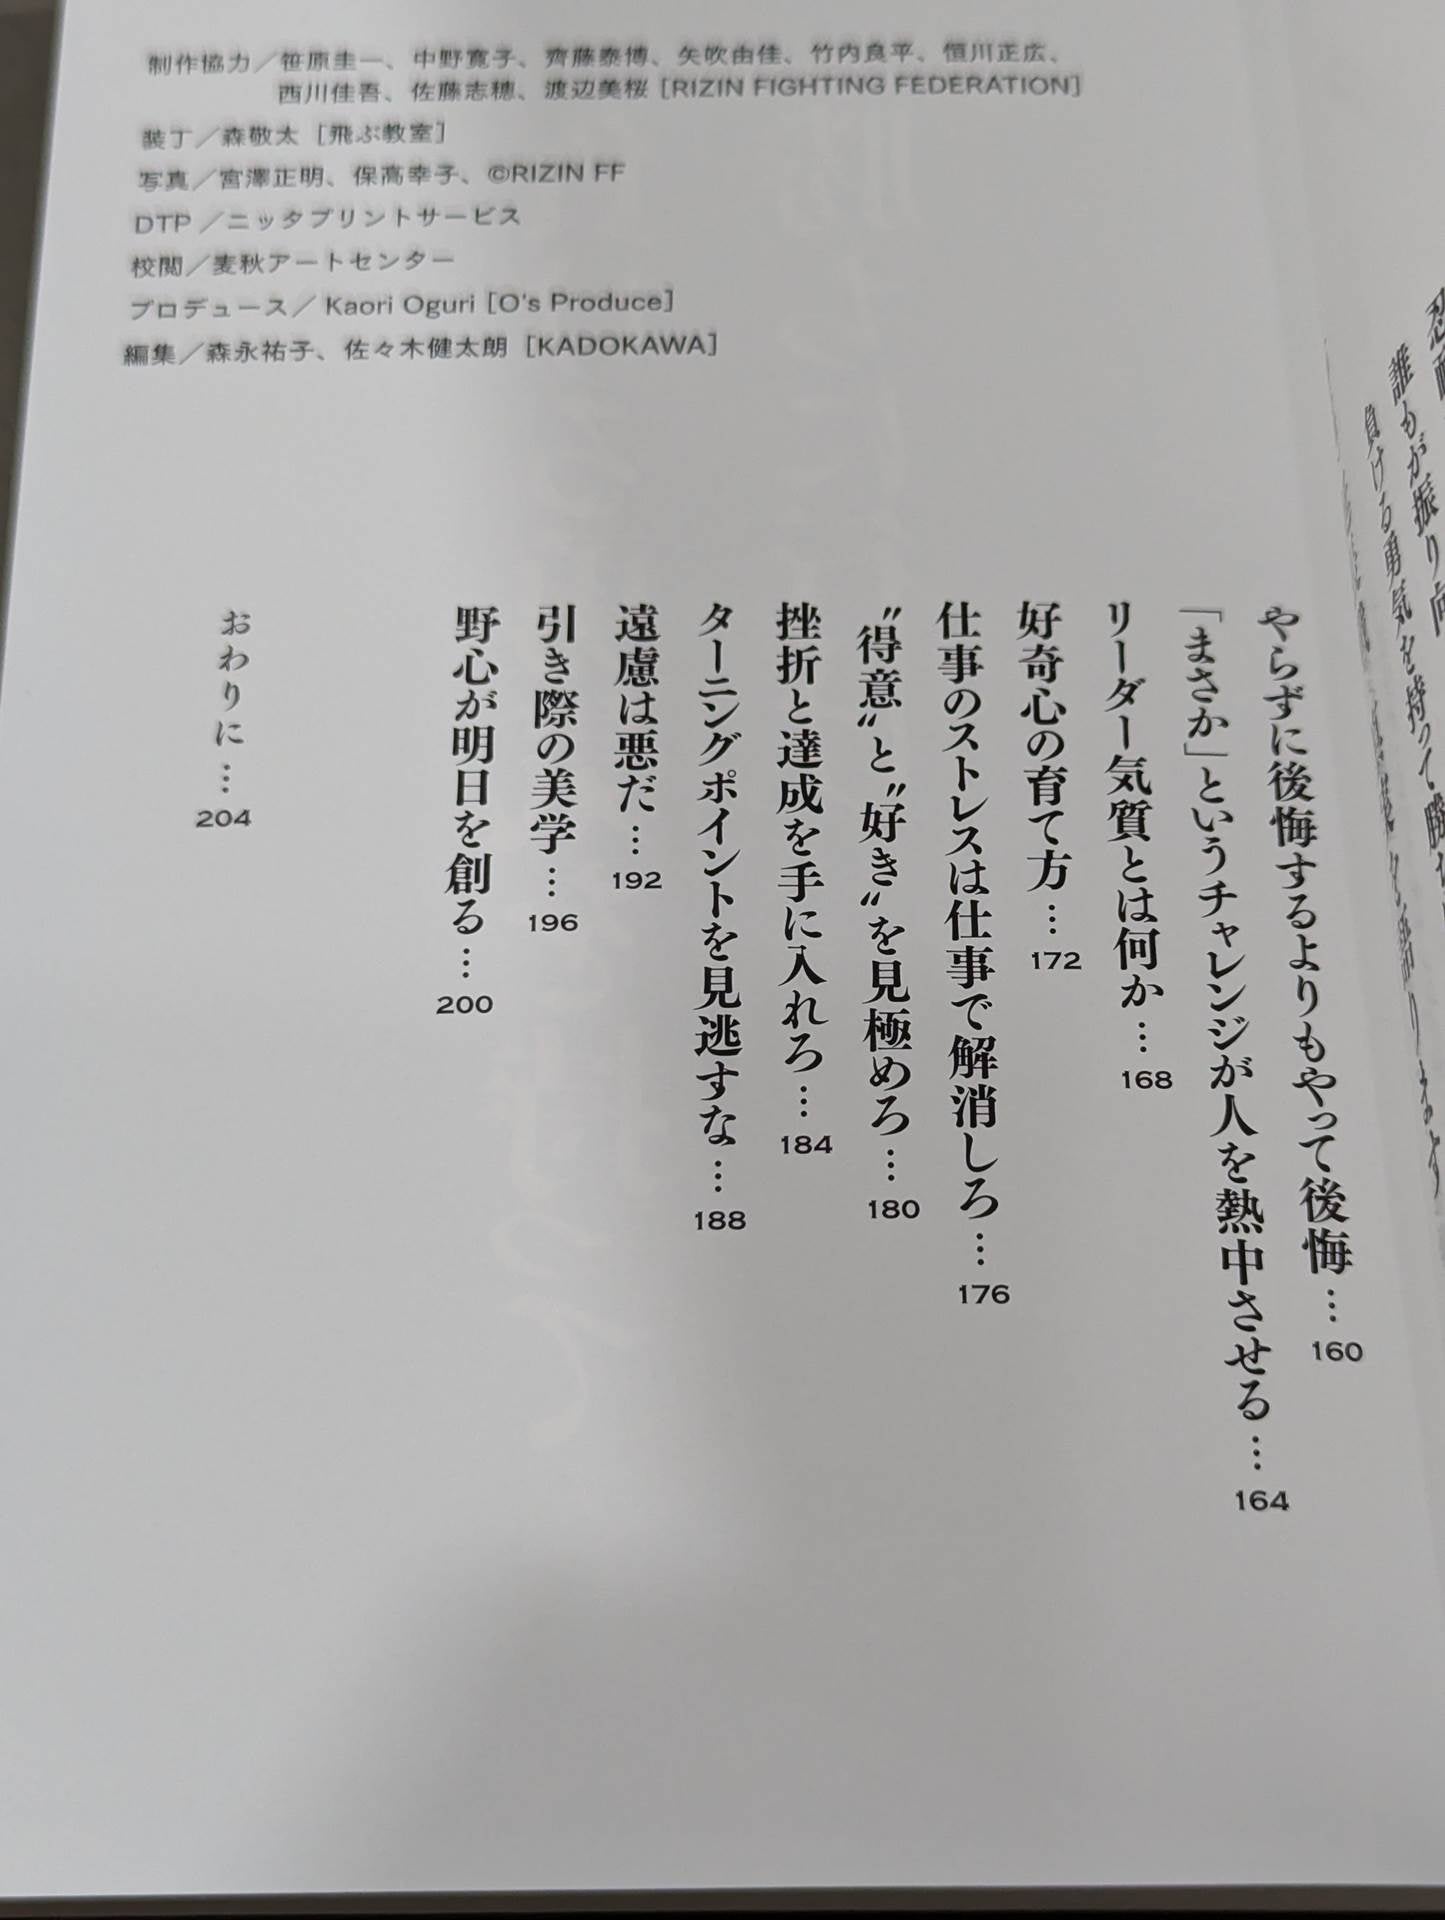 やらずに後悔するよりもやって後悔…160
「まさか」というチャレンジが人を熱中させる…164
リーダー気質とは何か…168
好奇心の育て方…172
仕事のストレスは仕事で解消しろ…176
〝得意〟と〝好き〟を見極めろ…180
挫折と達成を手に入れろ…184
ターニングポイントを見逃すな…188
遠慮は悪だ…192
引き際の美学…196
野心が明日を創る…200
おわりに…204
制作協力／笹原圭一、中野寛子、齊藤泰博、矢吹由佳、竹内良平、恒川正広、
西川佳吾、佐藤志穂、渡辺美桜［RIZIN FIGHTING FEDERATION］
装丁／森敬太［飛ぶ教室］
写真／宮澤正明、保高幸子、©RIZIN FF
DTP／ニッタプリントサービス
校閲／麦秋アートセンター
プロデュース／Kaori Oguri［O's Produce］
編集／森永祐子、佐々木健太朗［KADOKAWA］
誰もが振り向
負ける勇気を持って勝